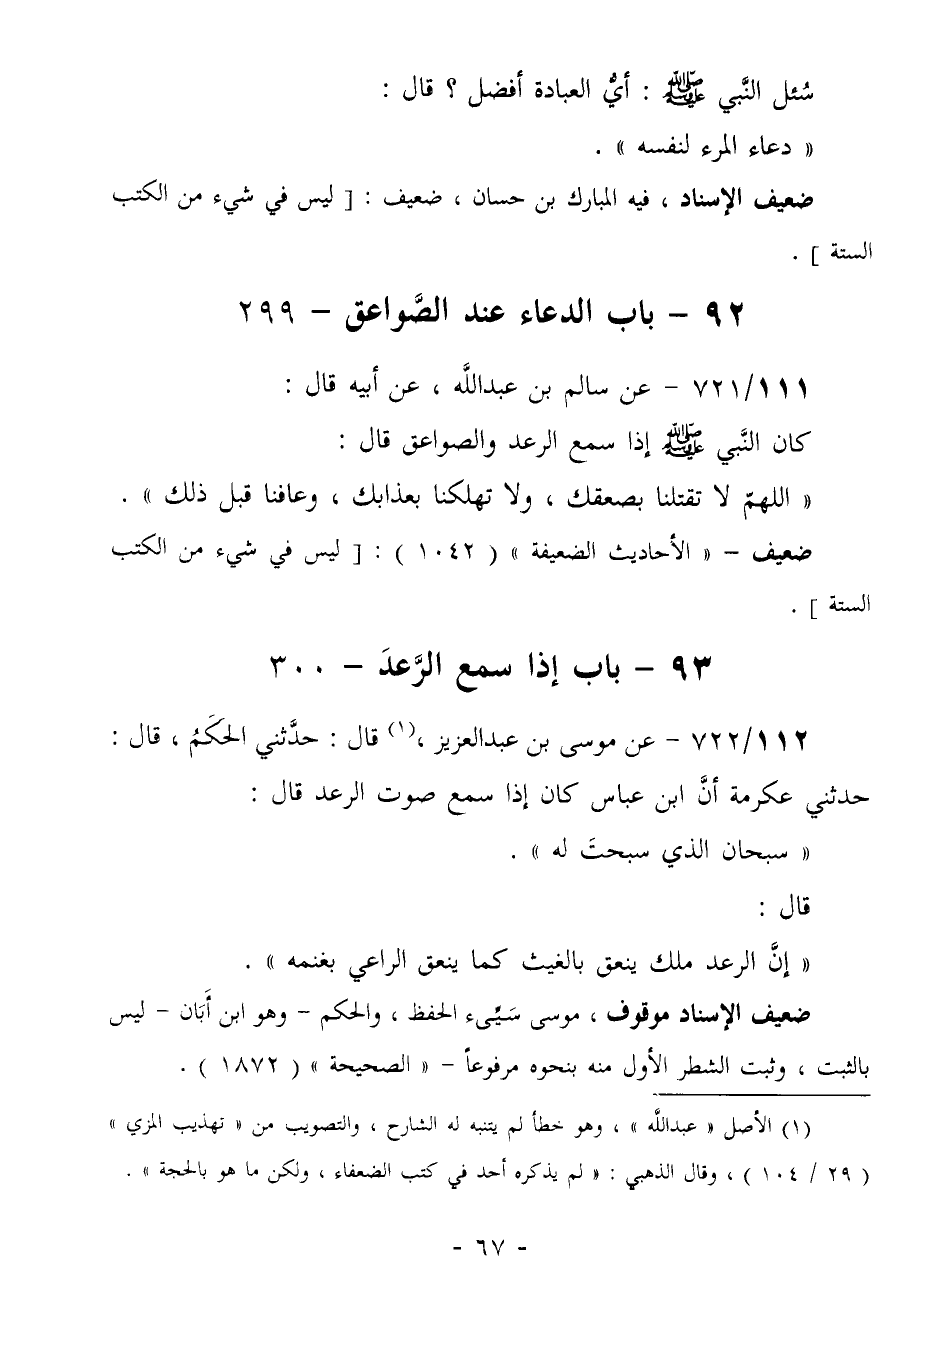 سُئل النَّبي ﷺ : أيُّ العبادة أفضل ؟ قال :
« دعاء المرء لنفسه » .
ضعيف الإسناد ، فيه المبارك بن حسان ، ضعيف : [ ليس في شيء من الكتب
الستة ] .
٩٢ - باب الدعاء عند الصَّواعق - ٢٩٩
٧٢١/١١١ - عن سالم بن عبدالله ، عن أبيه قال :
كان النَّبي ﷺ إذا سمع الرعد والصواعق قال :
« اللهمّ لا تقتلنا بصعقك ، ولا تهلكنا بعذابك ، وعافنا قبل ذلك » .
ضعيف - « الأحاديث الضعيفة » ( ١٠٤٢ ) : [ ليس في شيء من الكتب
الستة ] .
٩٣ - باب إذا سمع الرَّعدَ - ٣٠٠
٧٢٢/١١٢ - عن موسى بن عبدالعزيز ،(١) قال : حدَّثني الحَكَمُ ، قال :
حدثني عكرمة أنَّ ابن عباس كان إذا سمع صوت الرعد قال :
« سبحان الذي سبحتَ له » .
قال :
« إنَّ الرعد ملك ينعق بالغيث كما ينعق الراعي بغنمه » .
ضعيف الإسناد موقوف ، موسى سَيِّىء الحفظ ، والحكم - وهو ابن أَبَان - ليس
بالثبت ، وثبت الشطر الأول منه بنحوه مرفوعاً - « الصحيحة » ( ١٨٧٢ ) .
(١) الأصل « عبدالله » ، وهو خطأ لم يتنبه له الشارح ، والتصويب من « تهذيب المزي »
( ٢٩ / ١٠٤ ) ، وقال الذهبي : « لم يذكره أحد في كتب الضعفاء ، ولكن ما هو بالحجة » .
- ٦٧ -